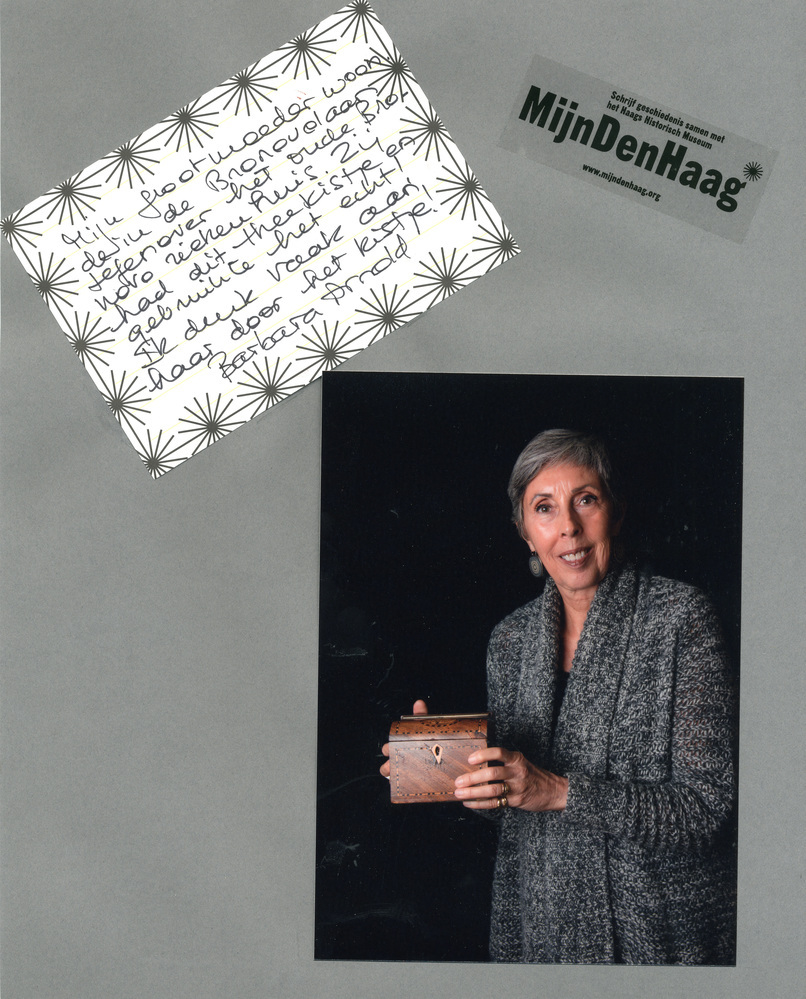 Mijn grootmoeder woon
de in de Bronovolaan
tegenover het oude Bro-
novo ziekenhuis. Zij
had dit theekistje en
gebruikte het echt!
Ik denk vaak aan
haar door het kistje!
Barbara Arnold
Schrijf geschiedenis samen met
het Haags Historisch Museum
MijnDenHaag
www.mijndenhaag.org